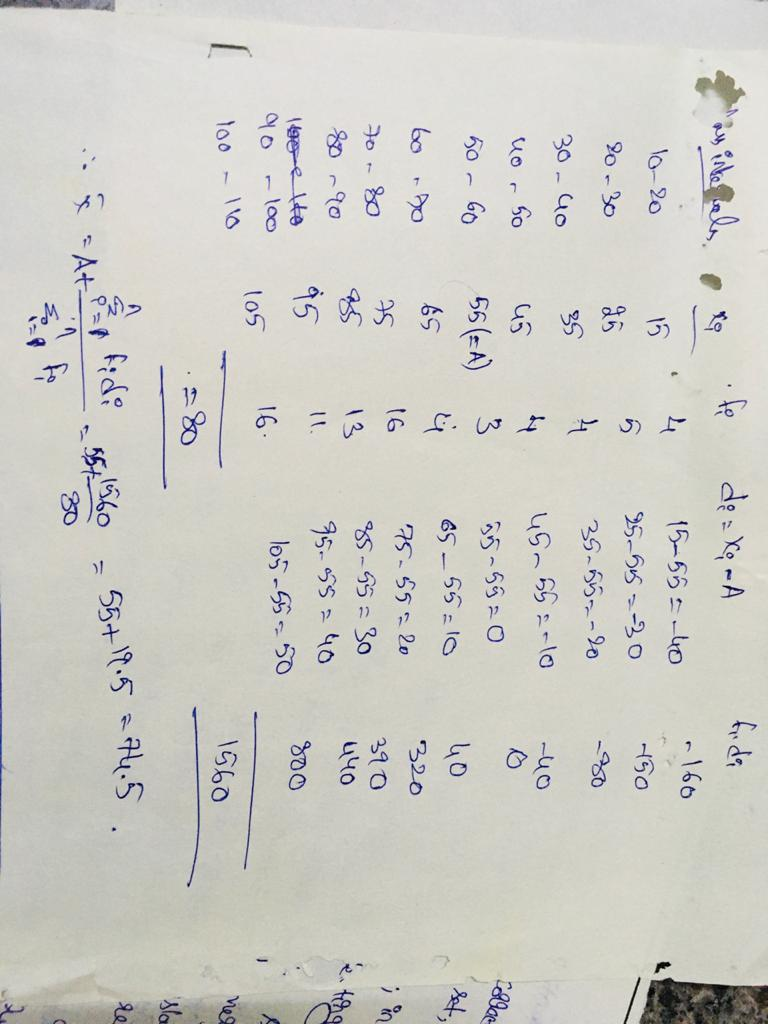 xi fi di = xi - A fidi
10-20 15 4 15-55 = -40 -160
20-30 25 5 25-55 = -30 -150
30-40 35 4 35-55 = -20 -80
40-50 45 4 45-55 = -10 -40
50-60 55(=A) 3 55-55 = 0 0
60-70 65 4 65-55 = 10 40
70-80 75 16 75-55 = 20 320
80-90 85 13 85-55 = 30 390
90-100 95 11 95-55 = 40 440
100-110 105 16 105-55 = 50 800
= 80 1560
∴ x̄ = A + Σ fidi / Σ fi = 55 + 1560/80 = 55 + 19.5 = 74.5.